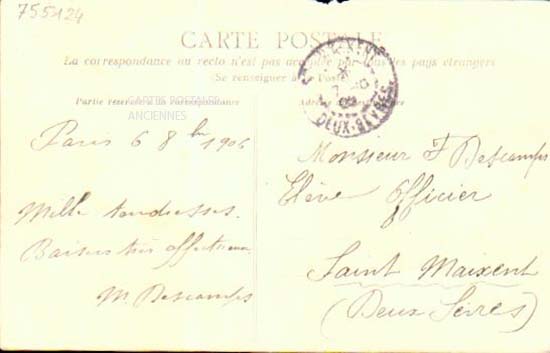 755124
CARTE POSTALE
La correspondance au recto n'est pas acceptée par tous les pays étrangers
(Se renseigner à la Poste)
Partie réservée à la Correspondance
CARTES POSTALES
ANCIENNES
Paris 6 8bre 1906
Mille tendresses.
Baisers très affectueux
M Descamps
DEUX-SEVRES
Monsieur F Descamps
Elève Officier
Saint Maixent
(Deux Sèvres)